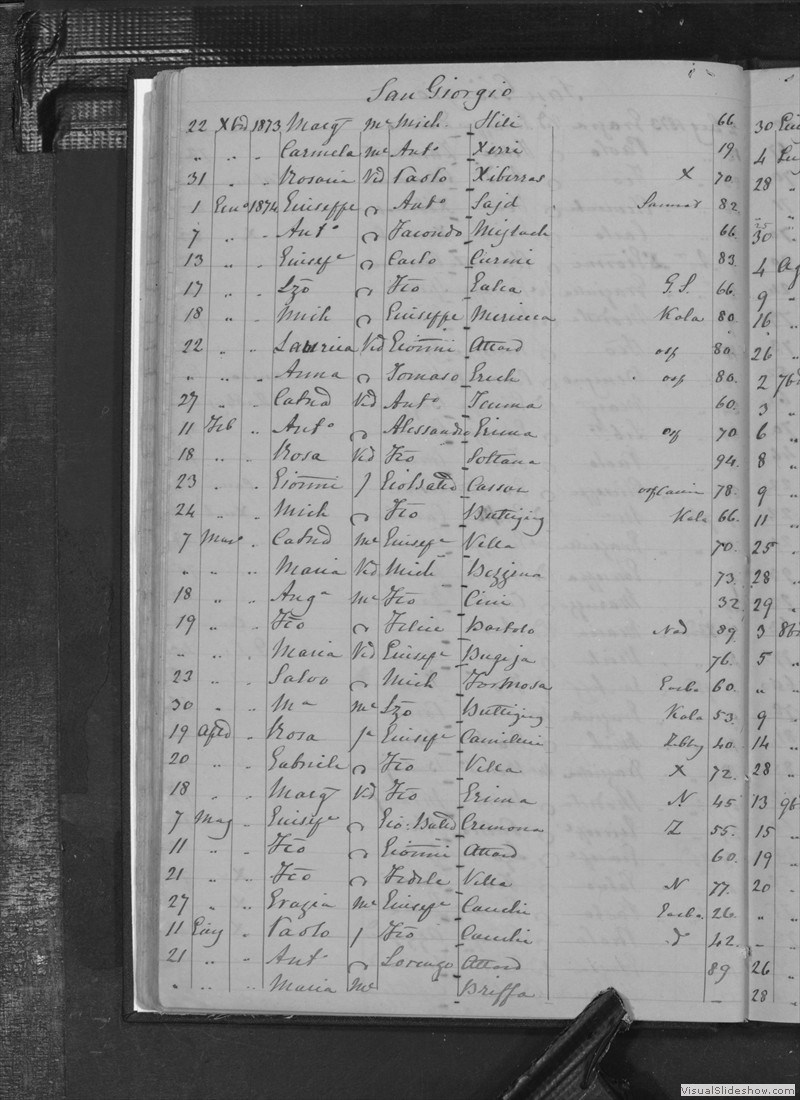 San Giorgio
22 Xbr 1873 Marg Me Mich. Hili 66
" " " Carmela Me Anto Xerri 19
31 " " Rosaria Vid Paolo Xiberras X 70
1 Genº 1874 Giuseppe Antº Sajd Sannat 82
7 " " Antº Facondo Mizbach 66
13 " " Giusepe Carlo Curmi 83
17 " " Lzo Fco Galea G.S. 66
18 " " Mich Giuseppe Mericca Kala 80
22 " " Vid Giovnni Attard osp 80
" " " Anna Tomaso Grech osp 80
27 " " Catnd Vid Antº 60
11 Feb " Antº Alessandro Grima osp 70
18 " " Rosa Vid Fco Soltana 94
23 " " Giovnni f Gio Batta Cassar osp 78
24 " " Mich Fco Buttigieg Kala 66
7 Marº " Catnd Me Giusepe Vella 70
" " " Maria Vid Mich Bezzina 73
18 " " Anga Me Fco Cini 32
19 " " Fco Felice Bartolo Nad 89
" " " Maria Vid Giusepe Bugeja 76
23 " " Salvo Mich Formosa Garba 60
30 " " Ma Me Lzo Buttigieg Kala 53
19 " Rosa fa Giusepe Camilleri Zebbg 40
20 " " Gabriele Fco Vella X 72
18 " " Marg Vid Fco Grima N 45
7 Mag " Giusepe Gio: Batta Cremona Z 55
11 " " Fco Giovnni Attard 60
21 " " Fco Fedele Vella N 77
27 " " Grazia Me Giusepe Camilri Garba 26
11 Giug " Paolo f Fco Camilri 42
21 " " Antº Lorenzo Attard 89
" " " Maria Me Briffa –
30
4
28
30
4 Ag
9
16
26
2 7b
3
6
8
9
11
25
28
29
3 8b
5
"
9
14
28
13 9b
15
19
20
"
–
26
28
VisualSlideshow.com